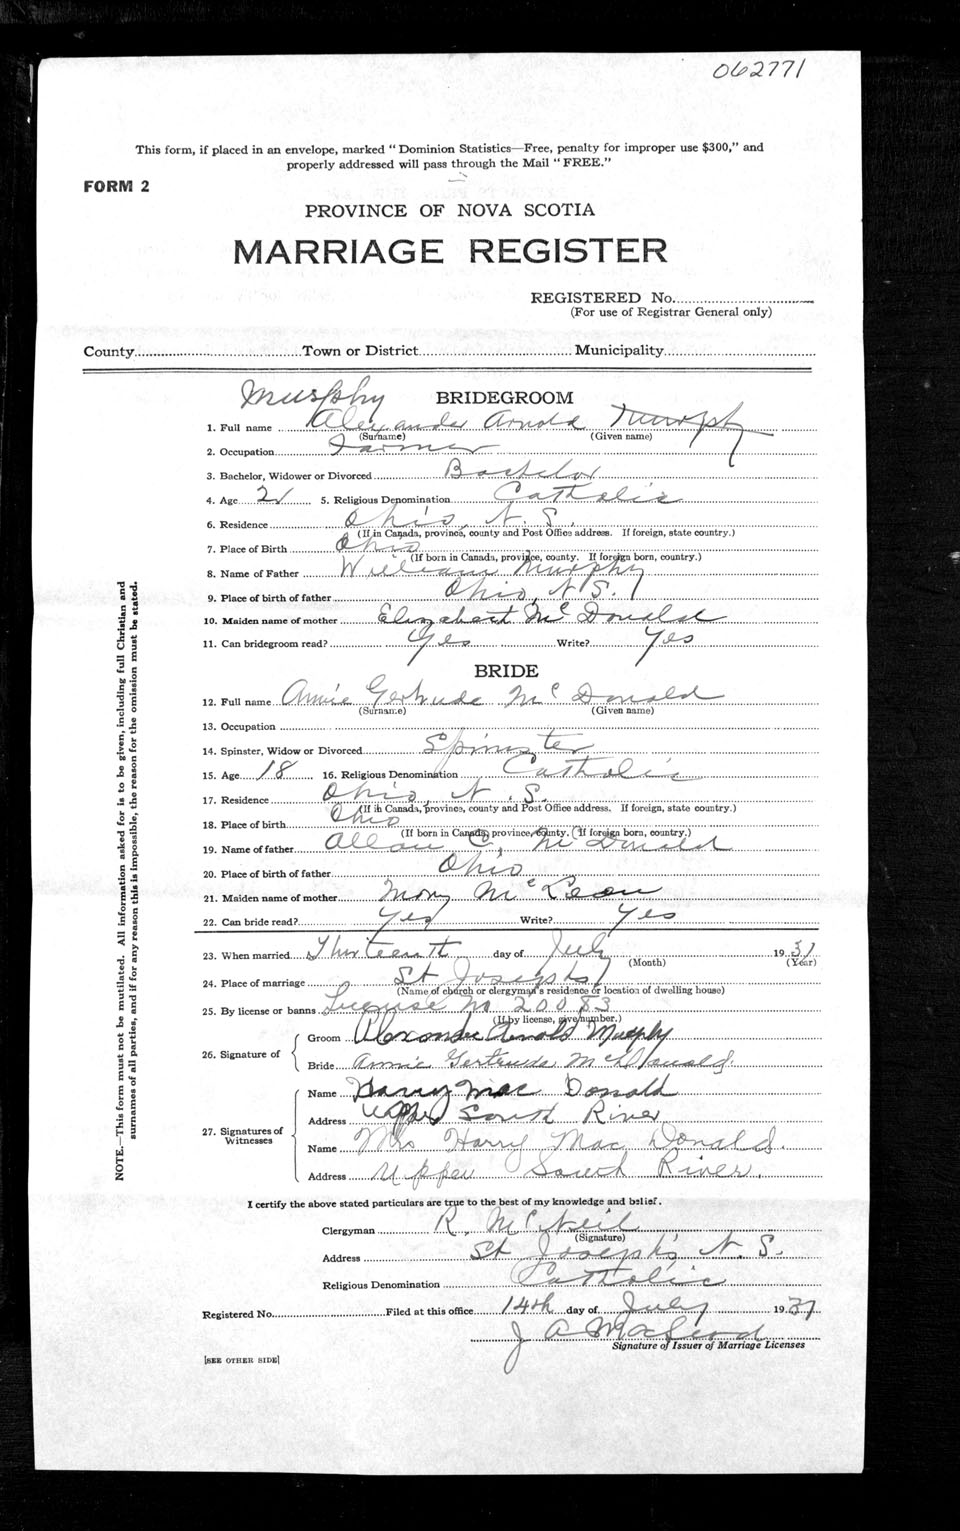 062771
This form, if placed in an envelope, marked "Dominion Statistics—Free, penalty for improper use $300," and
properly addressed will pass through the Mail "FREE."
FORM 2
PROVINCE OF NOVA SCOTIA
MARRIAGE REGISTER
REGISTERED No.
(For use of Registrar General only)
County Town or District Municipality
Murphy BRIDEGROOM
1. Full name Alexander Arnold Murphy
(Surname) (Given name)
2. Occupation Farmer
3. Bachelor, Widower or Divorced Bachelor
4. Age 21 5. Religious Denomination Catholic
6. Residence Ohio, N. S.
(If in Canada, province, county and Post Office address. If foreign, state country.)
7. Place of Birth Ohio
(If born in Canada, province, county. If foreign born, country.)
8. Name of Father William Murphy
9. Place of birth of father Ohio, N. S.
10. Maiden name of mother Elizabeth McDonald
11. Can bridegroom read? Yes Write? Yes
BRIDE
12. Full name Annie Gertrude McDonald
(Surname) (Given name)
13. Occupation
14. Spinster, Widow or Divorced Spinster
15. Age 18 16. Religious Denomination Catholic
17. Residence Ohio, N. S.
(If in Canada, province, county and Post Office address. If foreign, state country.)
18. Place of birth Ohio
(If born in Canada, province, county. If foreign born, country.)
19. Name of father Allan C. McDonald
20. Place of birth of father Ohio
21. Maiden name of mother Mary McLean
22. Can bride read? Yes Write? Yes
23. When married Thirteenth day of July 1937
(Month) (Year)
24. Place of marriage St Josephs
(Name of church or clergyman's residence or location of dwelling house)
25. By license or banns License No 20083
(If by license, give number.)
26. Signature of Groom Alexander Arnold Murphy
Bride Annie Gertrude McDonald.
27. Signatures of Witnesses Name Harry MacDonald
Address Upper South River
Name Mrs Harry MacDonald.
Address Upper South River.
I certify the above stated particulars are true to the best of my knowledge and belief.
Clergyman R. McNeil
(Signature)
Address St Joseph's, N. S.
Religious Denomination Catholic
Registered No. Filed at this office 14th day of July 1937
J A MacLeod
Signature of Issuer of Marriage Licenses
[SEE OTHER SIDE]
NOTE.—This form must not be mutilated. All information asked for is to be given, including full Christian and
surnames of all parties, and if for any reason this is impossible, the reason for the omission must be stated.